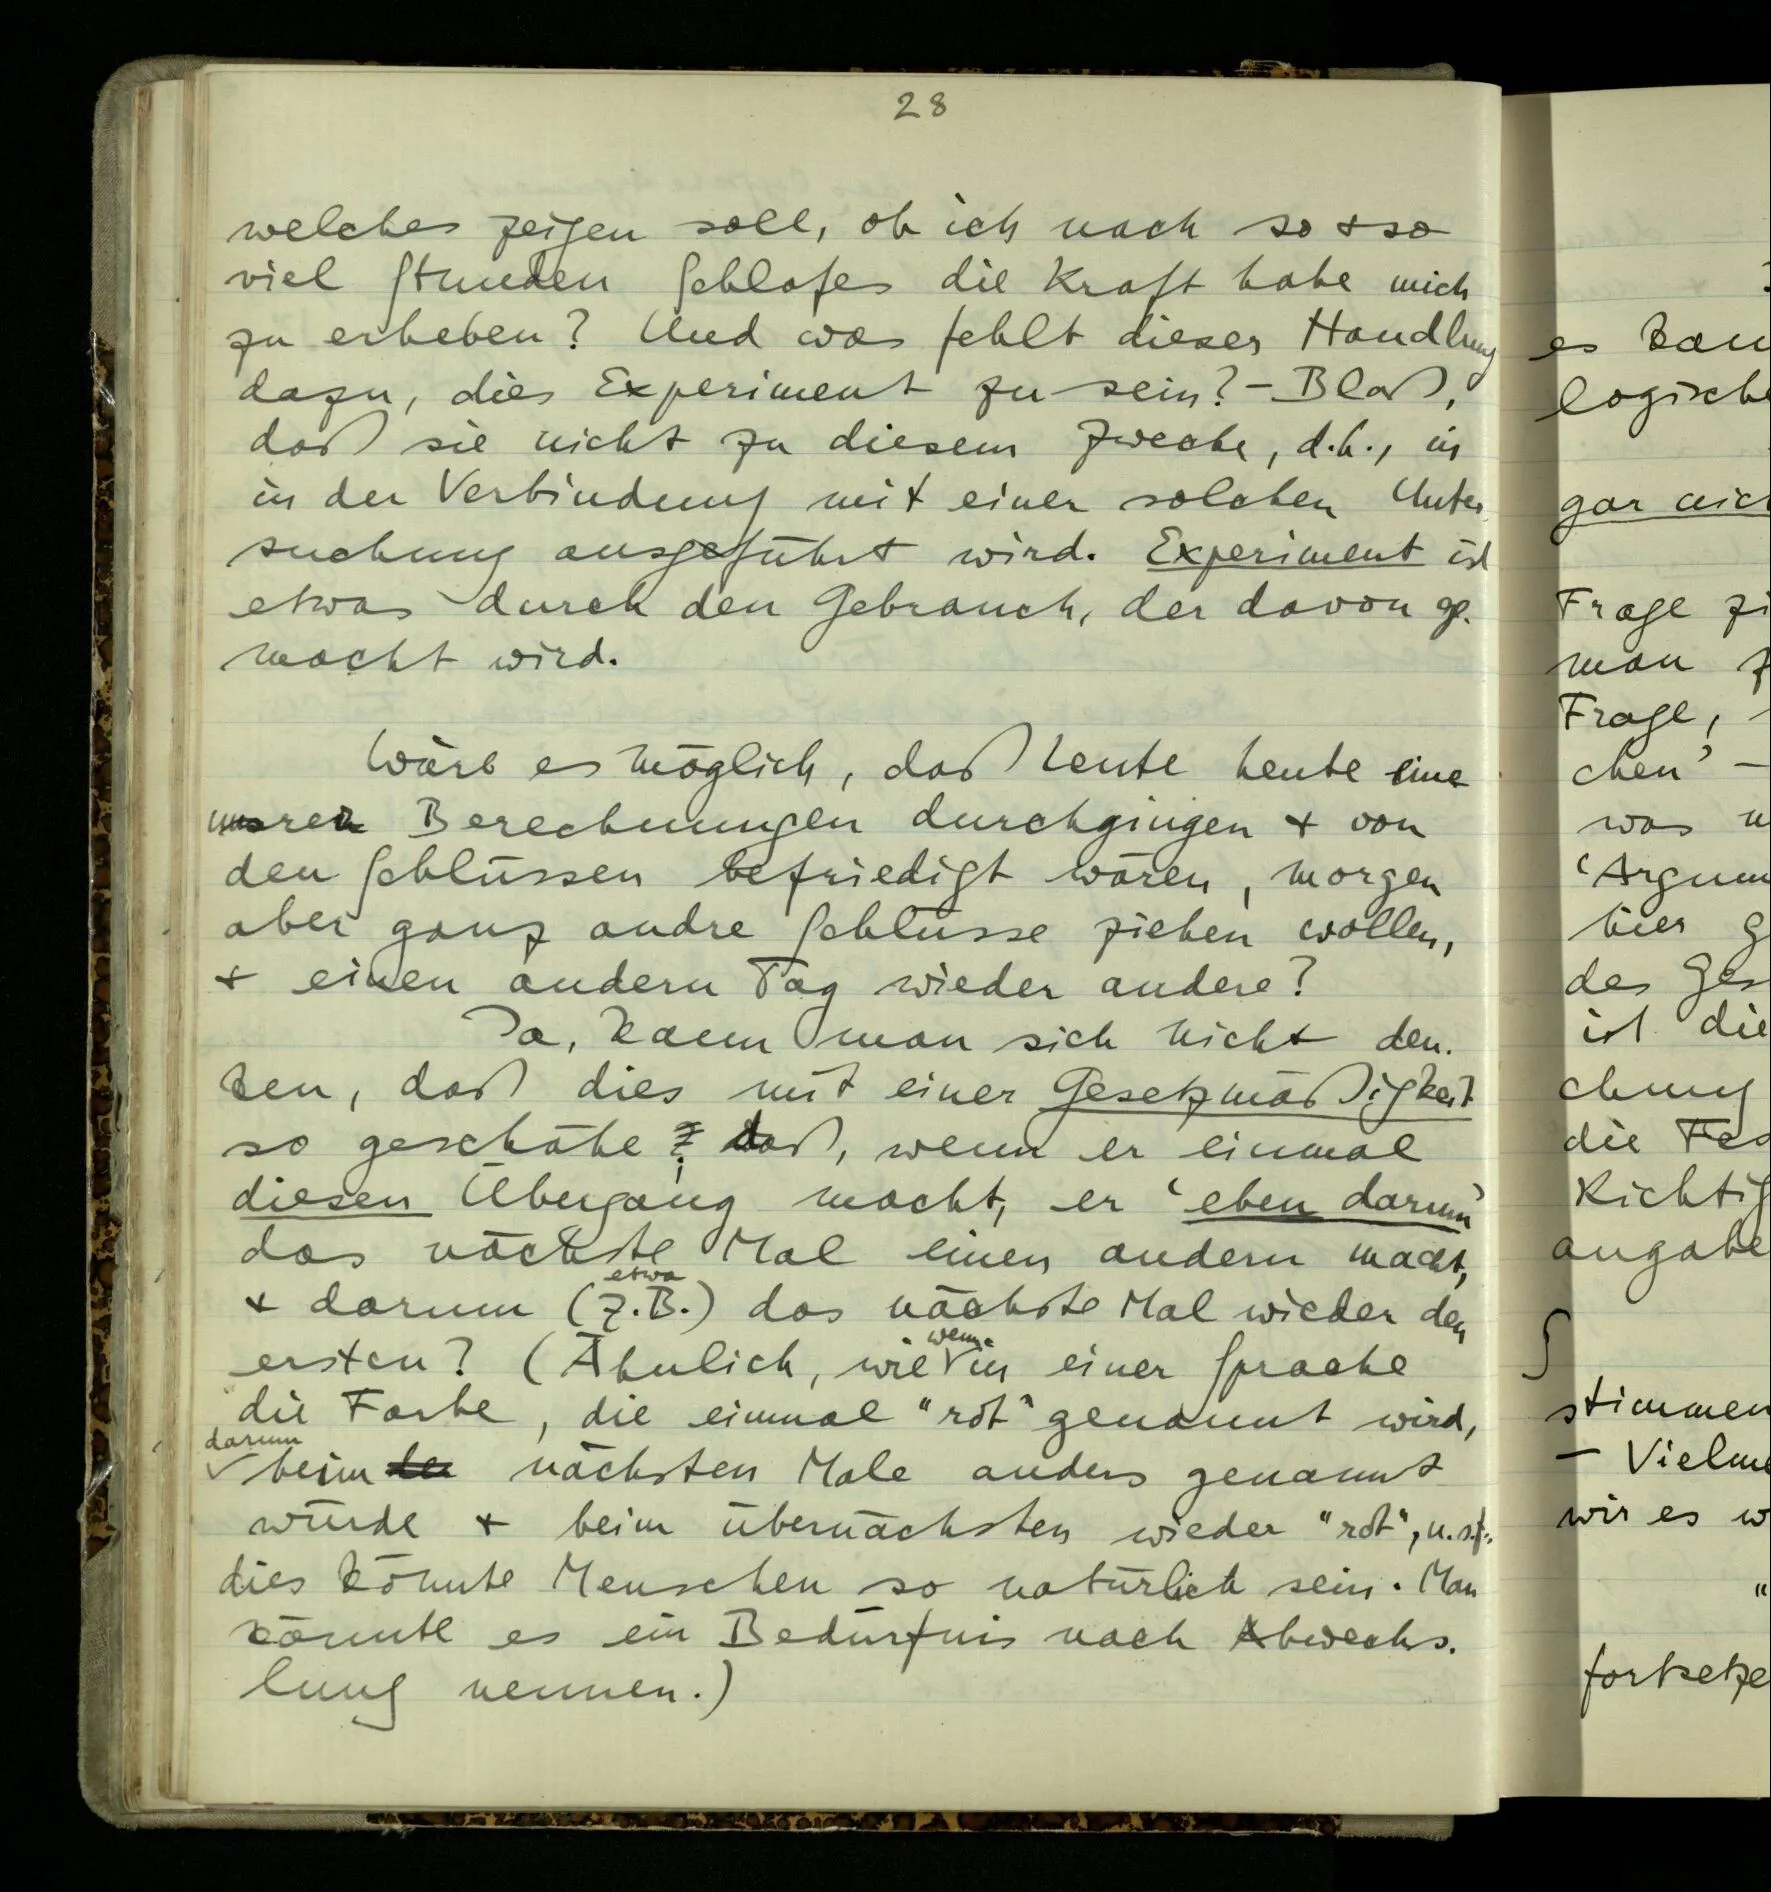 28
welches zeigen soll, ob ich nach so + so
viel Stunden Schlafes die Kraft habe mich
zu erheben? Und was fehlt dieser Handlung
dazu, dies Experiment zu sein? – Bloß,
daß sie nicht zu diesem Zwecke, d.h., in
in der Verbindung mit einer solchen Unter
suchung ausgeführt wird. Experiment ist
etwas durch den Gebrauch, der davon ge-
macht wird.
Wäre es möglich, daß Leute heute eine
unsrer Berechnungen durchgingen + von
den Schlüssen befriedigt wären, morgen
aber ganz andre Schlüsse ziehen wollen,
+ einen andern Tag wieder andere?
Ja, kann man sich nicht den-
ken, daß dies mit einer Gesetzmäßigkeit
so geschähe; daß, wenn er einmal
diesen Übergang macht, er ‘eben darum’
das nächste Mal einen andern macht,
etwa
+ darum (z.B.) das nächste Mal wieder den
wenn
ersten? (Ähnlich, wie in einer Sprache
die Farbe, die einmal "rot" genannt wird,
darum
beim nächsten Male anders genannt
würde + beim übernächsten wieder "rot", u.s.f.
dies könnte Menschen so natürlich sein. Man
könnte es ein Bedürfnis nach Abwechs-
lung nennen.)
es kan
logische
gar nich
Frage zi
man z
Frage,
chen’ –
was
‘Argum
hier g
des Ges
ist die
chung
die Fes
Richtig
angabe
∫
stimmen
– Vielme
wir es w
"
fortsetze